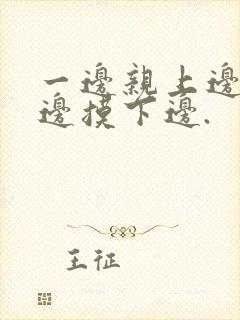 一邊親上邊
邊摸下邊.
王征